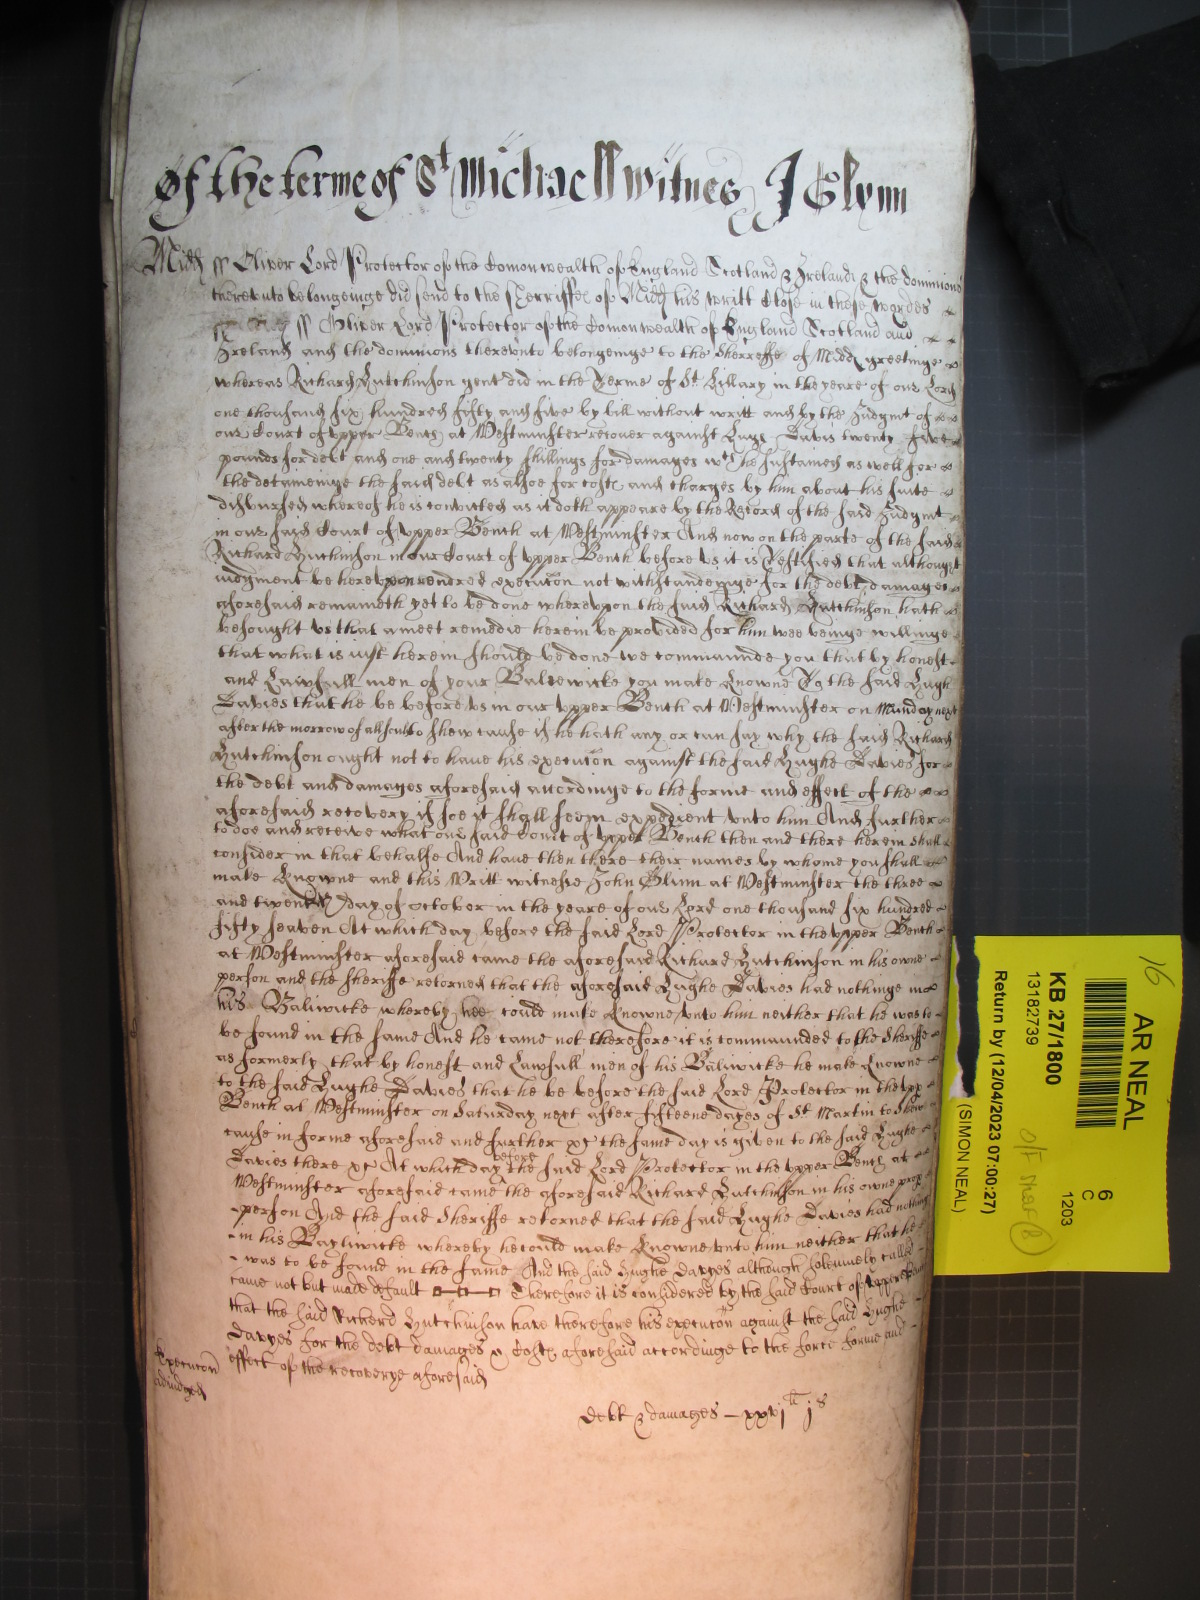 Of the terme of St Michaell witnes J Glynn
Midd ss Oliver Lord Protector of the Comonwealth of England Scotland & Ireland & the dominions
therevnto belongeinge did send to the Sherriffe of Midd his writt Close in these wordes
ss Oliver Lord Protector of the Comonwealth of England Scotland and
Ireland and the dominions therevnto belongeinge to the Sherreffe of Midd greetinge
whereas Richard Hutchinson gent did in the Terme of St Hillary in the yeare of our Lord
one thousand six hundred fifty and five by bill without writt and by the Judgmt of
our Court of vpper Bench at Westminster recover against Hugh Davis twenty five
pounds for debt and one and twenty shillings for damages wch he sustained as well for
the detaineinge the said debt as alsoe for costs and charges by him about his suite
disbursed whereof he is convicted as it doth appeare by the Record of the said Judgmt
in our said Court of vpper Bench at Westminster And now on the parte of the said
Richard Hutchinson in our Court of vpper Bench before vs it is Testified that although
iudgment be herevpon rendred execution not withstandeinge for the debt damages
aforesaid remaineth yet to be done wherevpon the said Richard Hutchinson hath
besought vs that a meet remedie herein be provided for him wee beinge willinge
that what is iust herein should be done we commaunde you that by honest
and Lawfull men of your Baliewicke you make knowne To the said Hugh
Davies that he be before vs in our vpper Bench at Westminster on Munday next
after the morrow of all soules to shew cause if he hath any or can say why the said Richard
Hutchinson ought not to have his execution against the said Hughe Davies for
the debt and damages aforesaid accordinge to the forme and effect of the
aforesaid recovery if soe it shall seem expedient vnto him And further
to doe and receive what our said Court of vpper Bench then and there herein shall
consider in that behalfe And have then there their names by whome you shall
make knowne and this Writt witnesse John Glinn at Westminster the three
and twentith day of October in the yeare of our Lord one thousand six hundred
fifty seaven At which day before the said Lord Protector in the vpper Bench
at Westminster aforesaid came the aforesaid Richard Hutchinson in his owne
person and the sheriffe retorned that the aforesaid Hughe Davies had nothinge in
his Baliwicke whereby hee could make knowne vnto him neither that he was to
be found in the same And he came not therefore it is commaunded to the sheriffe
as formerly that by honest and Lawfull men of his Baliwicke he make knowne
to the said Hughe Davies that he be before the said Lord Protector in the vpp
Bench at Westminster on Saturday next after fifteene dayes of St Martin to shew
cause in forme aforesaid and further &c the same day is given to the said Hughe
Davies there &c At which day before the said Lord Protector in the vpper Bench at
Westminster aforesaid came the aforesaid Richard Hutchinson in his owne prop
person And the said Sheriffe retorned that the said Hughe Davies had nothing
in his Bayliwicke whereby he could make knowne vnto him neither that he
was to be found in the same And the said Hughe Davyes although solemnely called
came not but made default Therefore it is considered by the said Court of vpper Bench
that the said Richerd Hutchinson have therefore his execution against the said Hughe
Davyes for the debt damages & Costs aforesaid accordinge to the force forme and
effect of the recoverye aforesaid
Execution
adiudged
Debt & damages - xxvj li j s
16
AR NEAL
6
C
1203
KB 27/1800
13182739
Return by (12/04/2023 07:00:27)
(SIMON NEAL)